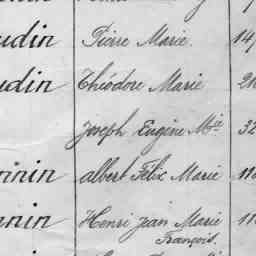 udin Pierre Marie. 14
udin Théodore Marie 21
Joseph Eugène Mie 32
nnin albert Félix Marie 11
nnin Henri jean Marie 11
François.